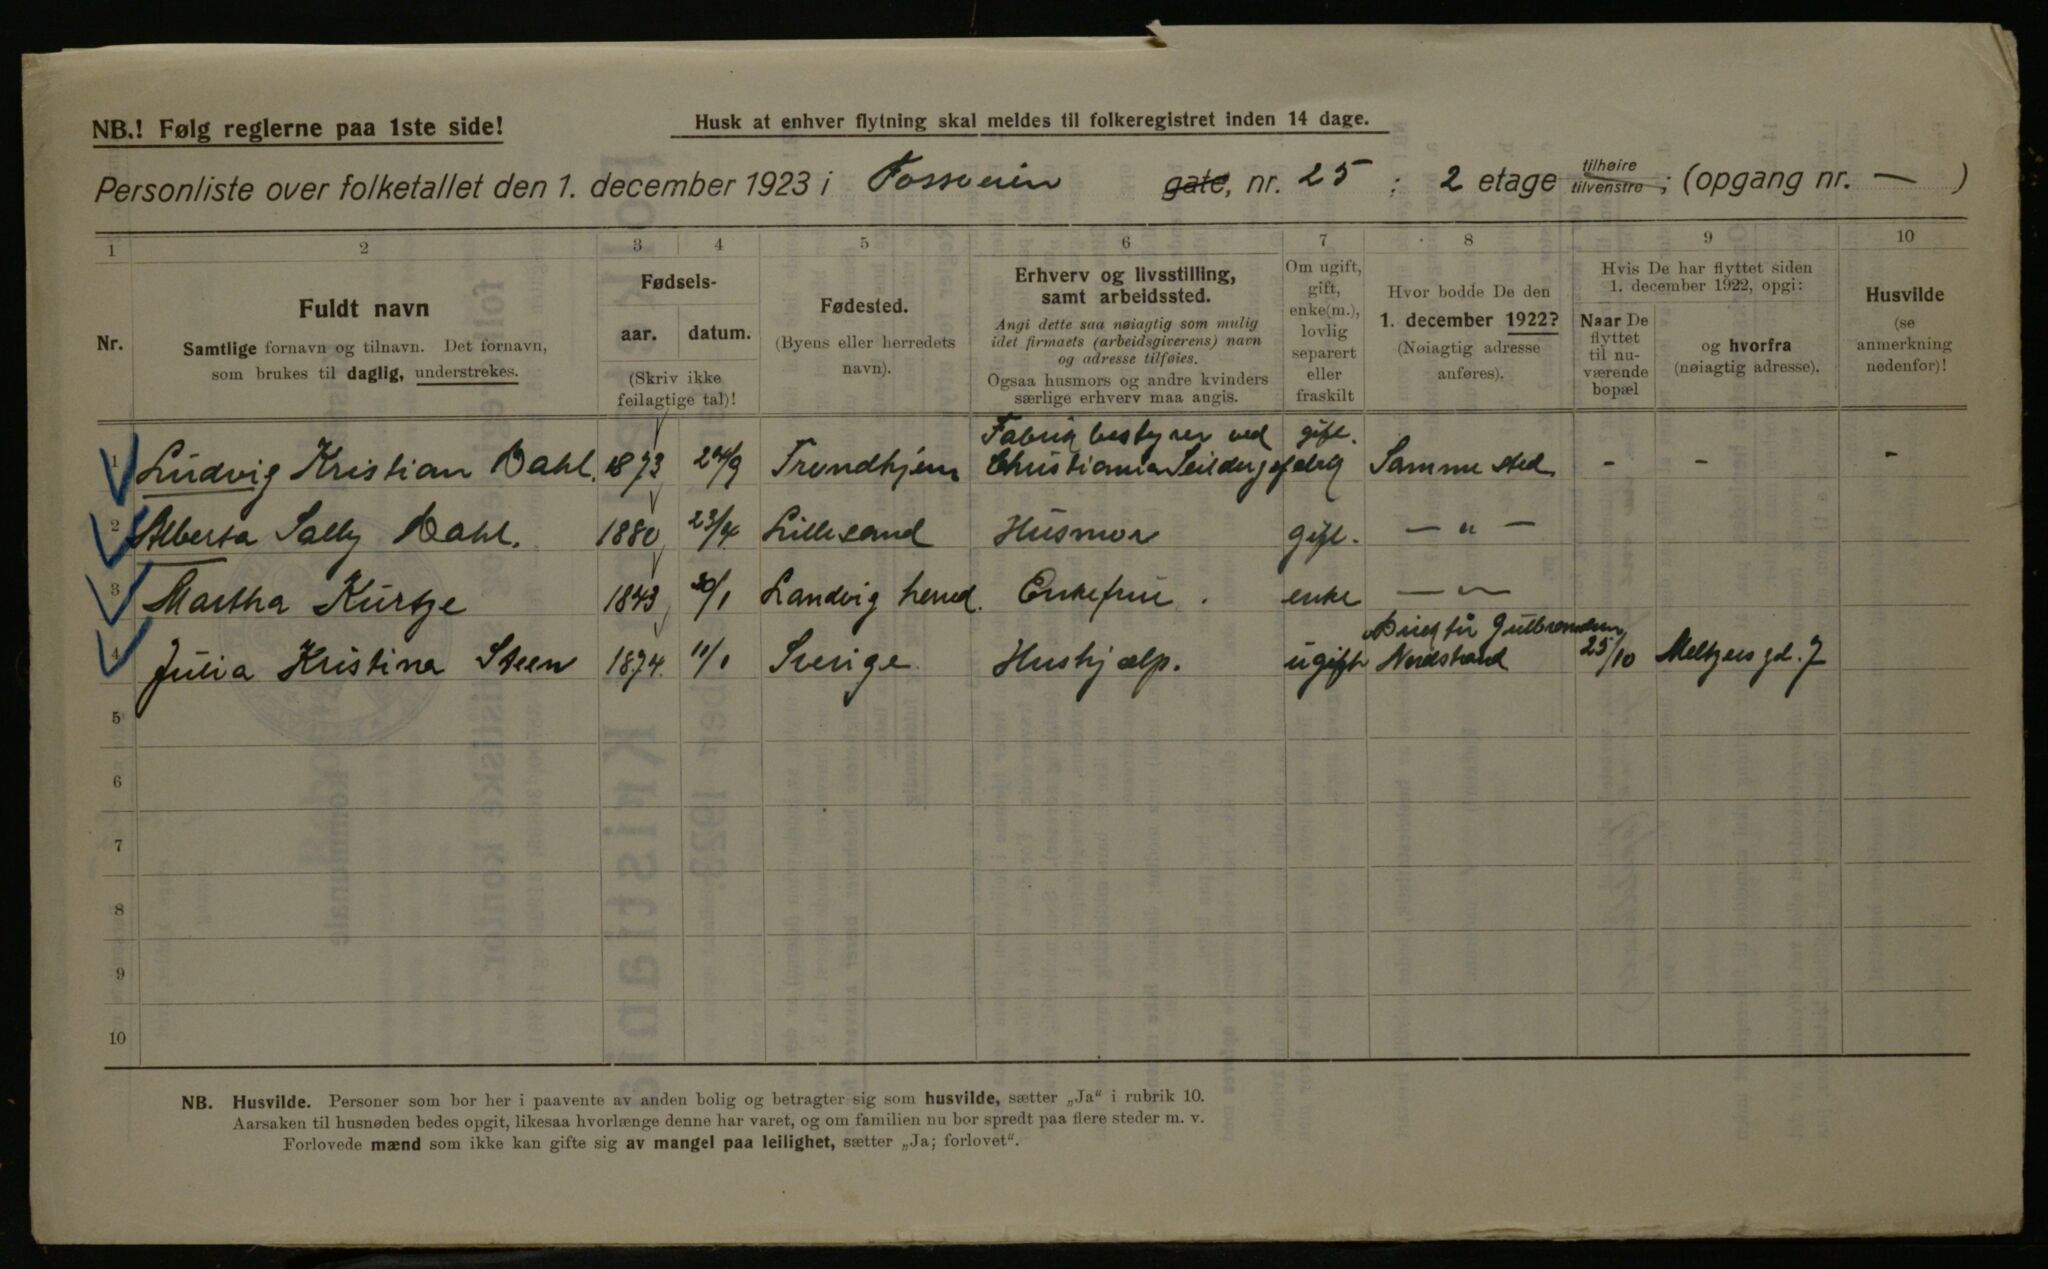 NB.! Følg reglerne paa 1ste side!
Husk at enhver flytning skal meldes til folkeregistret inden 14 dage.
Personliste over folketallet den 1. december 1923 i Fossveien gate, nr. 25 ; 2 etage tilhøire tilvenstre ; (opgang nr. — )
1 2 3 4 5 6 7 8 9 10
Nr.
Fuldt navn
Samtlige fornavn og tilnavn. Det fornavn,
som brukes til daglig, understrekes.
Fødsels-
aar. datum.
(Skriv ikke
feilagtige tal)!
Fødested.
(Byens eller herredets
navn).
Erhverv og livsstilling,
samt arbeidssted.
Angi dette saa nøiagtig som mulig
idet firmaets (arbeidsgiverens) navn
og adresse tilføies.
Ogsaa husmors og andre kvinders
særlige erhverv maa angis.
Om ugift,
gift,
enke(m.),
lovlig
separert
eller
fraskilt
Hvor bodde De den
1. december 1922?
(Nøiagtig adresse
anføres).
Hvis De har flyttet siden
1. december 1922, opgi:
Naar De
flyttet
til nu-
værende
bopæl
og hvorfra
(nøiagtig adresse).
Husvilde
(se
anmerkning
nedenfor)!
Fabrikbestyrer ved gift.
1 Ludvig Kristian Dahl. 1873 24/9 Trondhjem Christiania Seildugsfabrik Samme sted. - - -
2 Alberta Sally Dahl. 1880 23/4 Lillesand Husmor gift. — " —
3 Martha Kürtze 1843 30/1 Landvig herred. Enkefrue. enke — " —
Gulbrandsen
4 Julia Kristina Steen 1874. 11/1 Sverige. Hushjælp. ugift Nordstrand 25/10 Meltzers gd. 7
5
6
7
8
9
10
NB. Husvilde. Personer som bor her i paavente av anden bolig og betragter sig som husvilde, sætter „Ja“ i rubrik 10.
Aarsaken til husnøden bedes opgit, likesaa hvorlænge denne har varet, og om familien nu bor spredt paa flere steder m. v.
Forlovede mænd som ikke kan gifte sig av mangel paa leilighet, sætter „Ja; forlovet“.